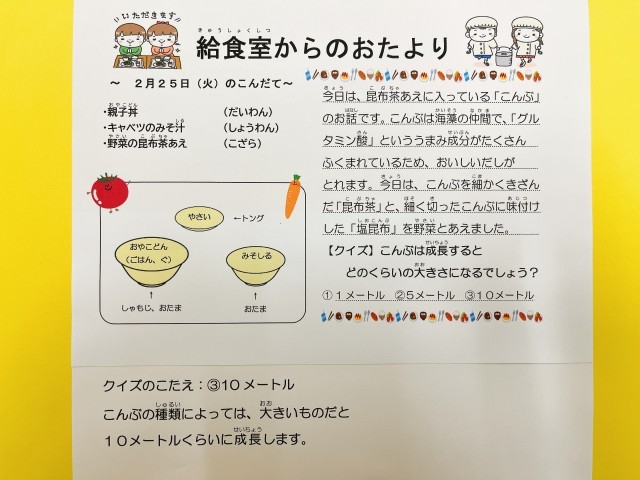 いただきます
給食室からのおたより
～ 2月25日（火）のこんだて～
・親子丼 （だいわん）
・キャベツのみそ汁 （しょうわん）
・野菜の昆布茶あえ （こざら）
やさい ←トング
おやこどん
（ごはん、ぐ）
みそしる
↑ ↑
しゃもじ、おたま おたま
今日は、昆布茶あえに入っている「こんぶ」
のお話です。こんぶは海藻の仲間で、「グル
タミン酸」といううまみ成分がたくさん
ふくまれているため、おいしいだしが
とれます。今日は、こんぶを細かくきざん
だ「昆布茶」と、細く切ったこんぶに味付け
した「塩昆布」を野菜とあえました。
【クイズ】こんぶは成長すると
どのくらいの大きさになるでしょう？
①1メートル ②5メートル ③10メートル
クイズのこたえ：③10メートル
こんぶの種類によっては、大きいものだと
10メートルくらいに成長します。